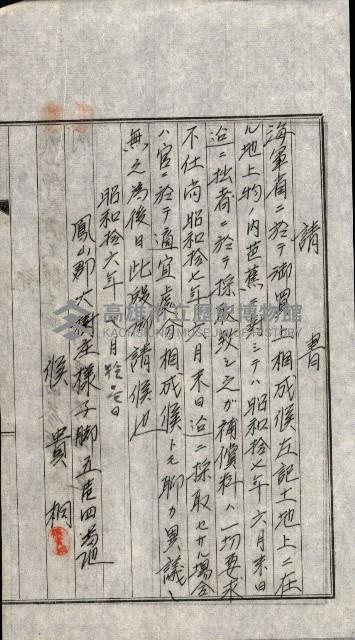 請書
海軍省ニ於テ御買上相成候左記土地上ニ在
ル地上物ノ内芭蕉ニ對シテハ昭和拾七年六月末日
迄ニ拙者ニ於テ採取致シ之ガ補償料ハ一切要求
不仕尚昭和拾七年六月末日迄ニ採取セサル場合
ハ官ニ於テ適宜處分相成候トモ聊カ異議
無之為後日此段御請候也
昭和拾六年 月拾 日
鳳山郡大樹庄樣子脚五百四番地
候貴桐
高雄市立歷史博物館
KAOHSIUNG MUSEUM OF HISTORY